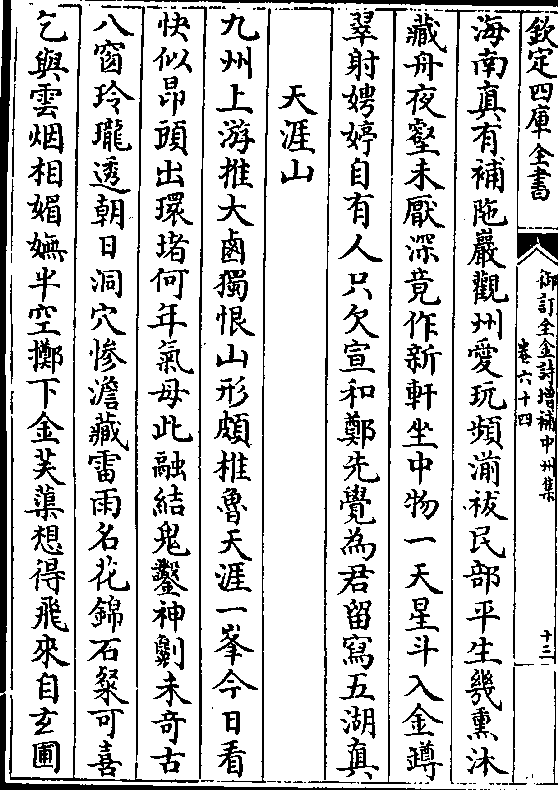 欽定四庫全書
御訂全金詩增補中州集
卷六十四
十三
海南真有補陁巖觀州愛玩頻湔祓民部平生幾熏沐
藏舟夜壑未厭深竟作新軒坐中物一天星斗入金鐏
翠射娉婷自有人只欠宣和鄭先覺為君留寫五湖真
天涯山
九州上游推大鹵獨恨山形頗椎魯天涯一峯今日看
快似昂頭出環堵何年氣母此融結鬼鑿神剜未奇古
八窗玲瓏透朝日洞穴慘澹藏雷雨名花錦石粲可喜
乞與雲烟相媚嫵半空擲下金芙蕖想得飛來自玄圃